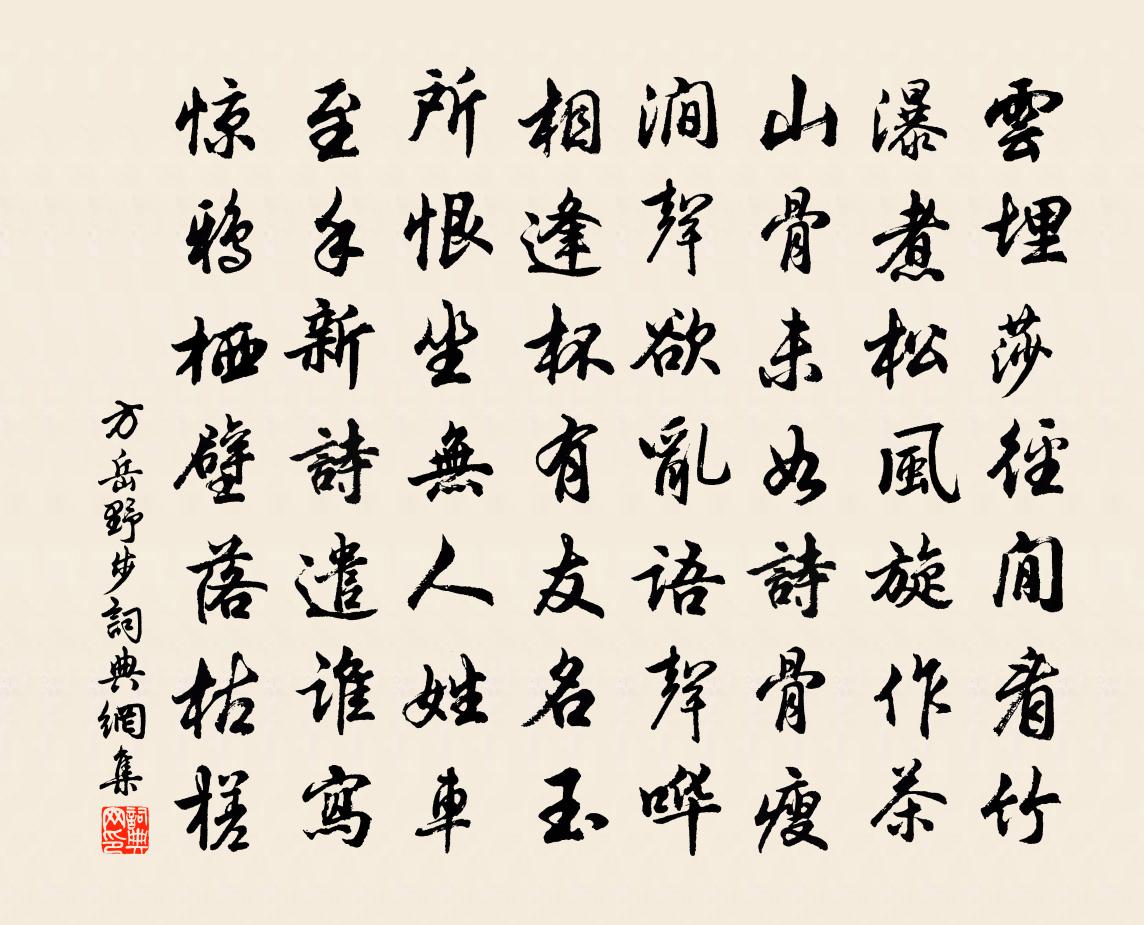 雲埋莎徑閒看竹
瀑煮松風旋作茶
山骨未如詩骨瘦
澗聲欲亂語聲哗
相逢杯有友名玉
所恨坐無人姓車
至手新詩遣誰寫
惊鸦栖壁落枯槎
方岳野步詞典網集
詞典网印